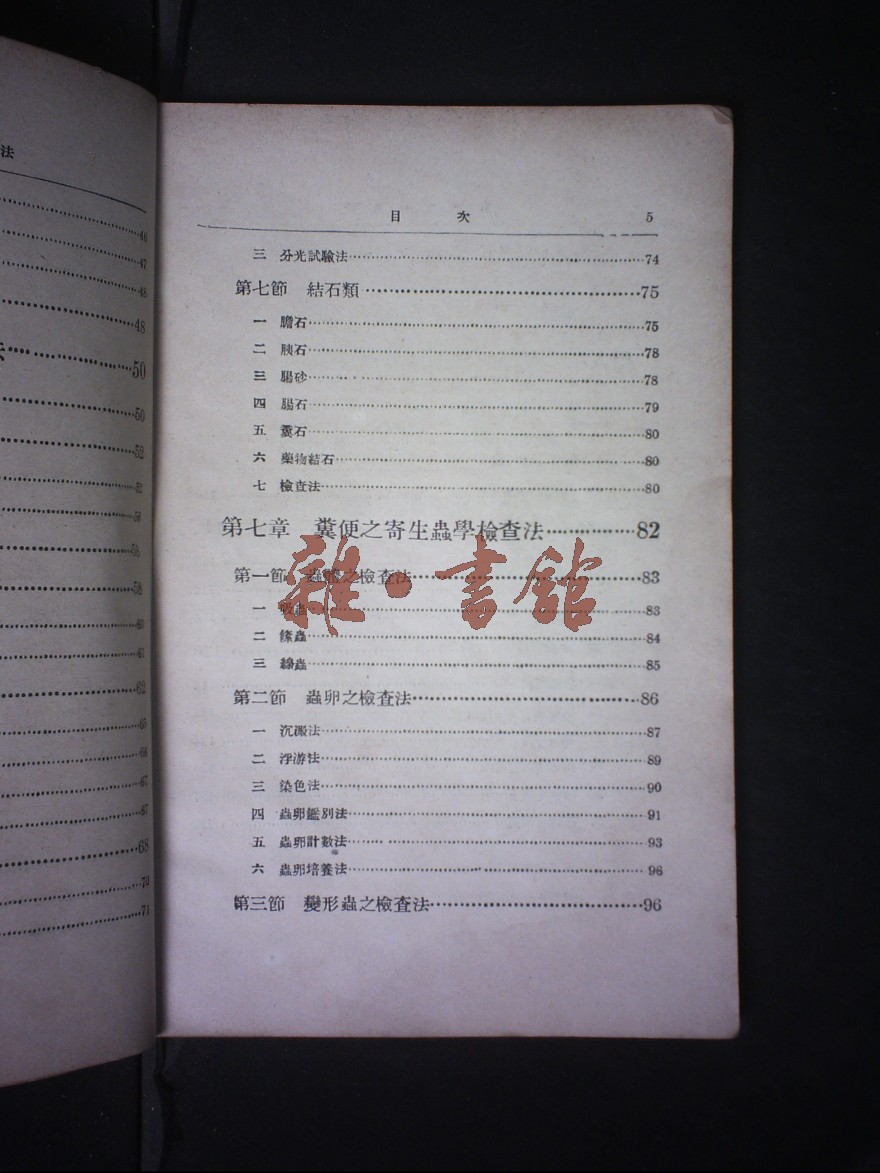 法
46
47
48
48
法 50
50
52
52
58
60
61
62
65
66
67
67
68
70
71
目 次 5
三 分光試驗法 74
第七節 結石類 75
一 膽石 75
二 胰石 78
三 腸砂 78
四 腸石 79
五 糞石 80
六 藥物結石 80
七 檢查法 80
第七章 糞便之寄生蟲學檢查法 82
第一節 蟲體之檢查法 83
一 吸蟲 83
二 絛蟲 84
三 線蟲 85
第二節 蟲卵之檢查法 86
一 沉澱法 87
二 浮游法 89
三 染色法 90
四 蟲卵鑑別法 91
五 蟲卵計數法 93
六 蟲卵培養法 96
第三節 變形蟲之檢查法 96
雜·書館